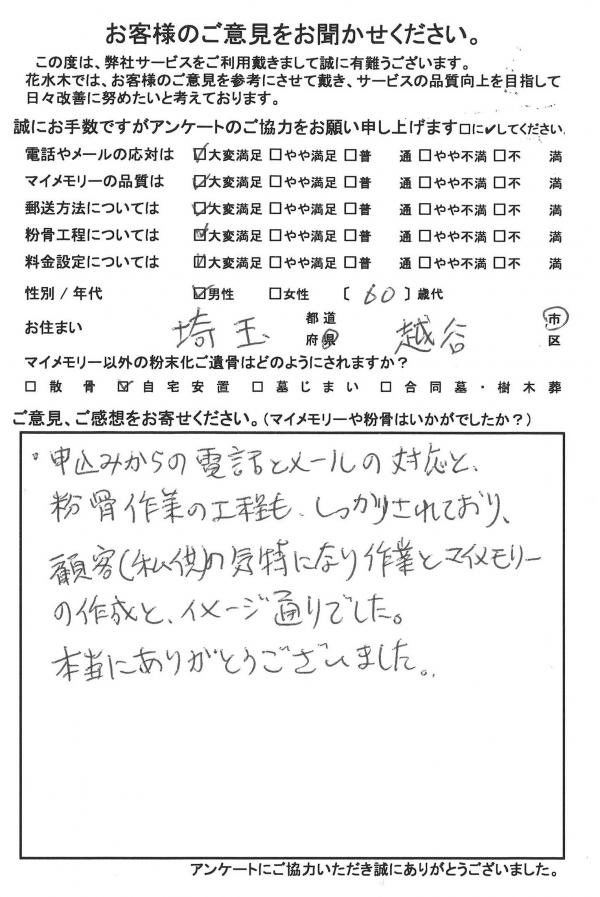 お客様のご意見をお聞かせください。
この度は、弊社サービスをご利用戴きまして誠に有難うございます。
花水木では、お客様のご意見を参考にさせて戴き、サービスの品質向上を目指して
日々改善に努めたいと考えております。
誠にお手数ですがアンケートのご協力をお願い申し上げます□に✔してください。
電話やメールの応対は ☑大変満足 □やや満足 □普 通 □やや不満 □不 満
マイメモリーの品質は ☑大変満足 □やや満足 □普 通 □やや不満 □不 満
郵送方法については ☑大変満足 □やや満足 □普 通 □やや不満 □不 満
粉骨工程については ☑大変満足 □やや満足 □普 通 □やや不満 □不 満
料金設定については ☑大変満足 □やや満足 □普 通 □やや不満 □不 満
性別 / 年代 ☑男性 □女性 〔 60 〕歳代
お住まい 埼玉 都道府県 越谷 市区
マイメモリー以外の粉末化ご遺骨はどのようにされますか?
□ 散骨 ☑ 自宅安置 □ 墓じまい □ 合同墓・樹木葬
ご意見、ご感想をお寄せください。(マイメモリーや粉骨はいかがでしたか?)
。申込みからの電話とメールの対応と、
粉骨作業の工程も、しっかりされており、
顧客(私供)の気持になり作業とマイメモリー
の作成と、イメージ通りでした。
本当にありがとうございました。
アンケートにご協力いただき誠にありがとうございました。